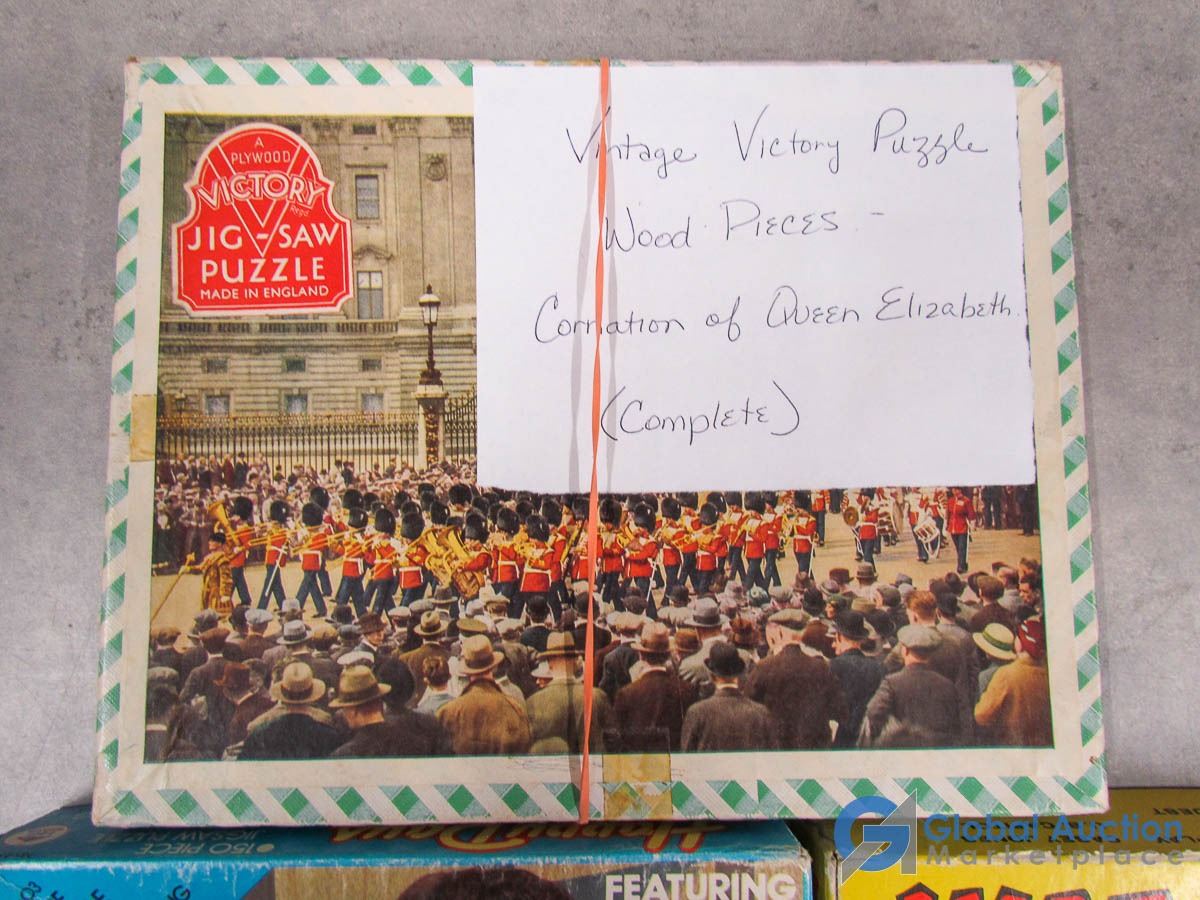 A
PLYWOOD
VICTORY
Regd
JIG-SAW
PUZZLE
MADE IN ENGLAND
Vintage Victory Puzzle
Wood Pieces -
Cornation of Queen Elizabeth.
(Complete)
150 PIECE
JIGSAW PUZZLE
Happy Days
FEATURING
Global Auction
Marketplace